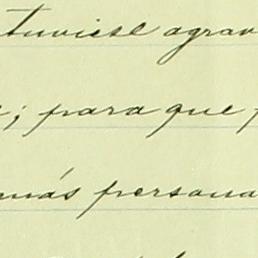 tuviese agrav
; para que
más persona